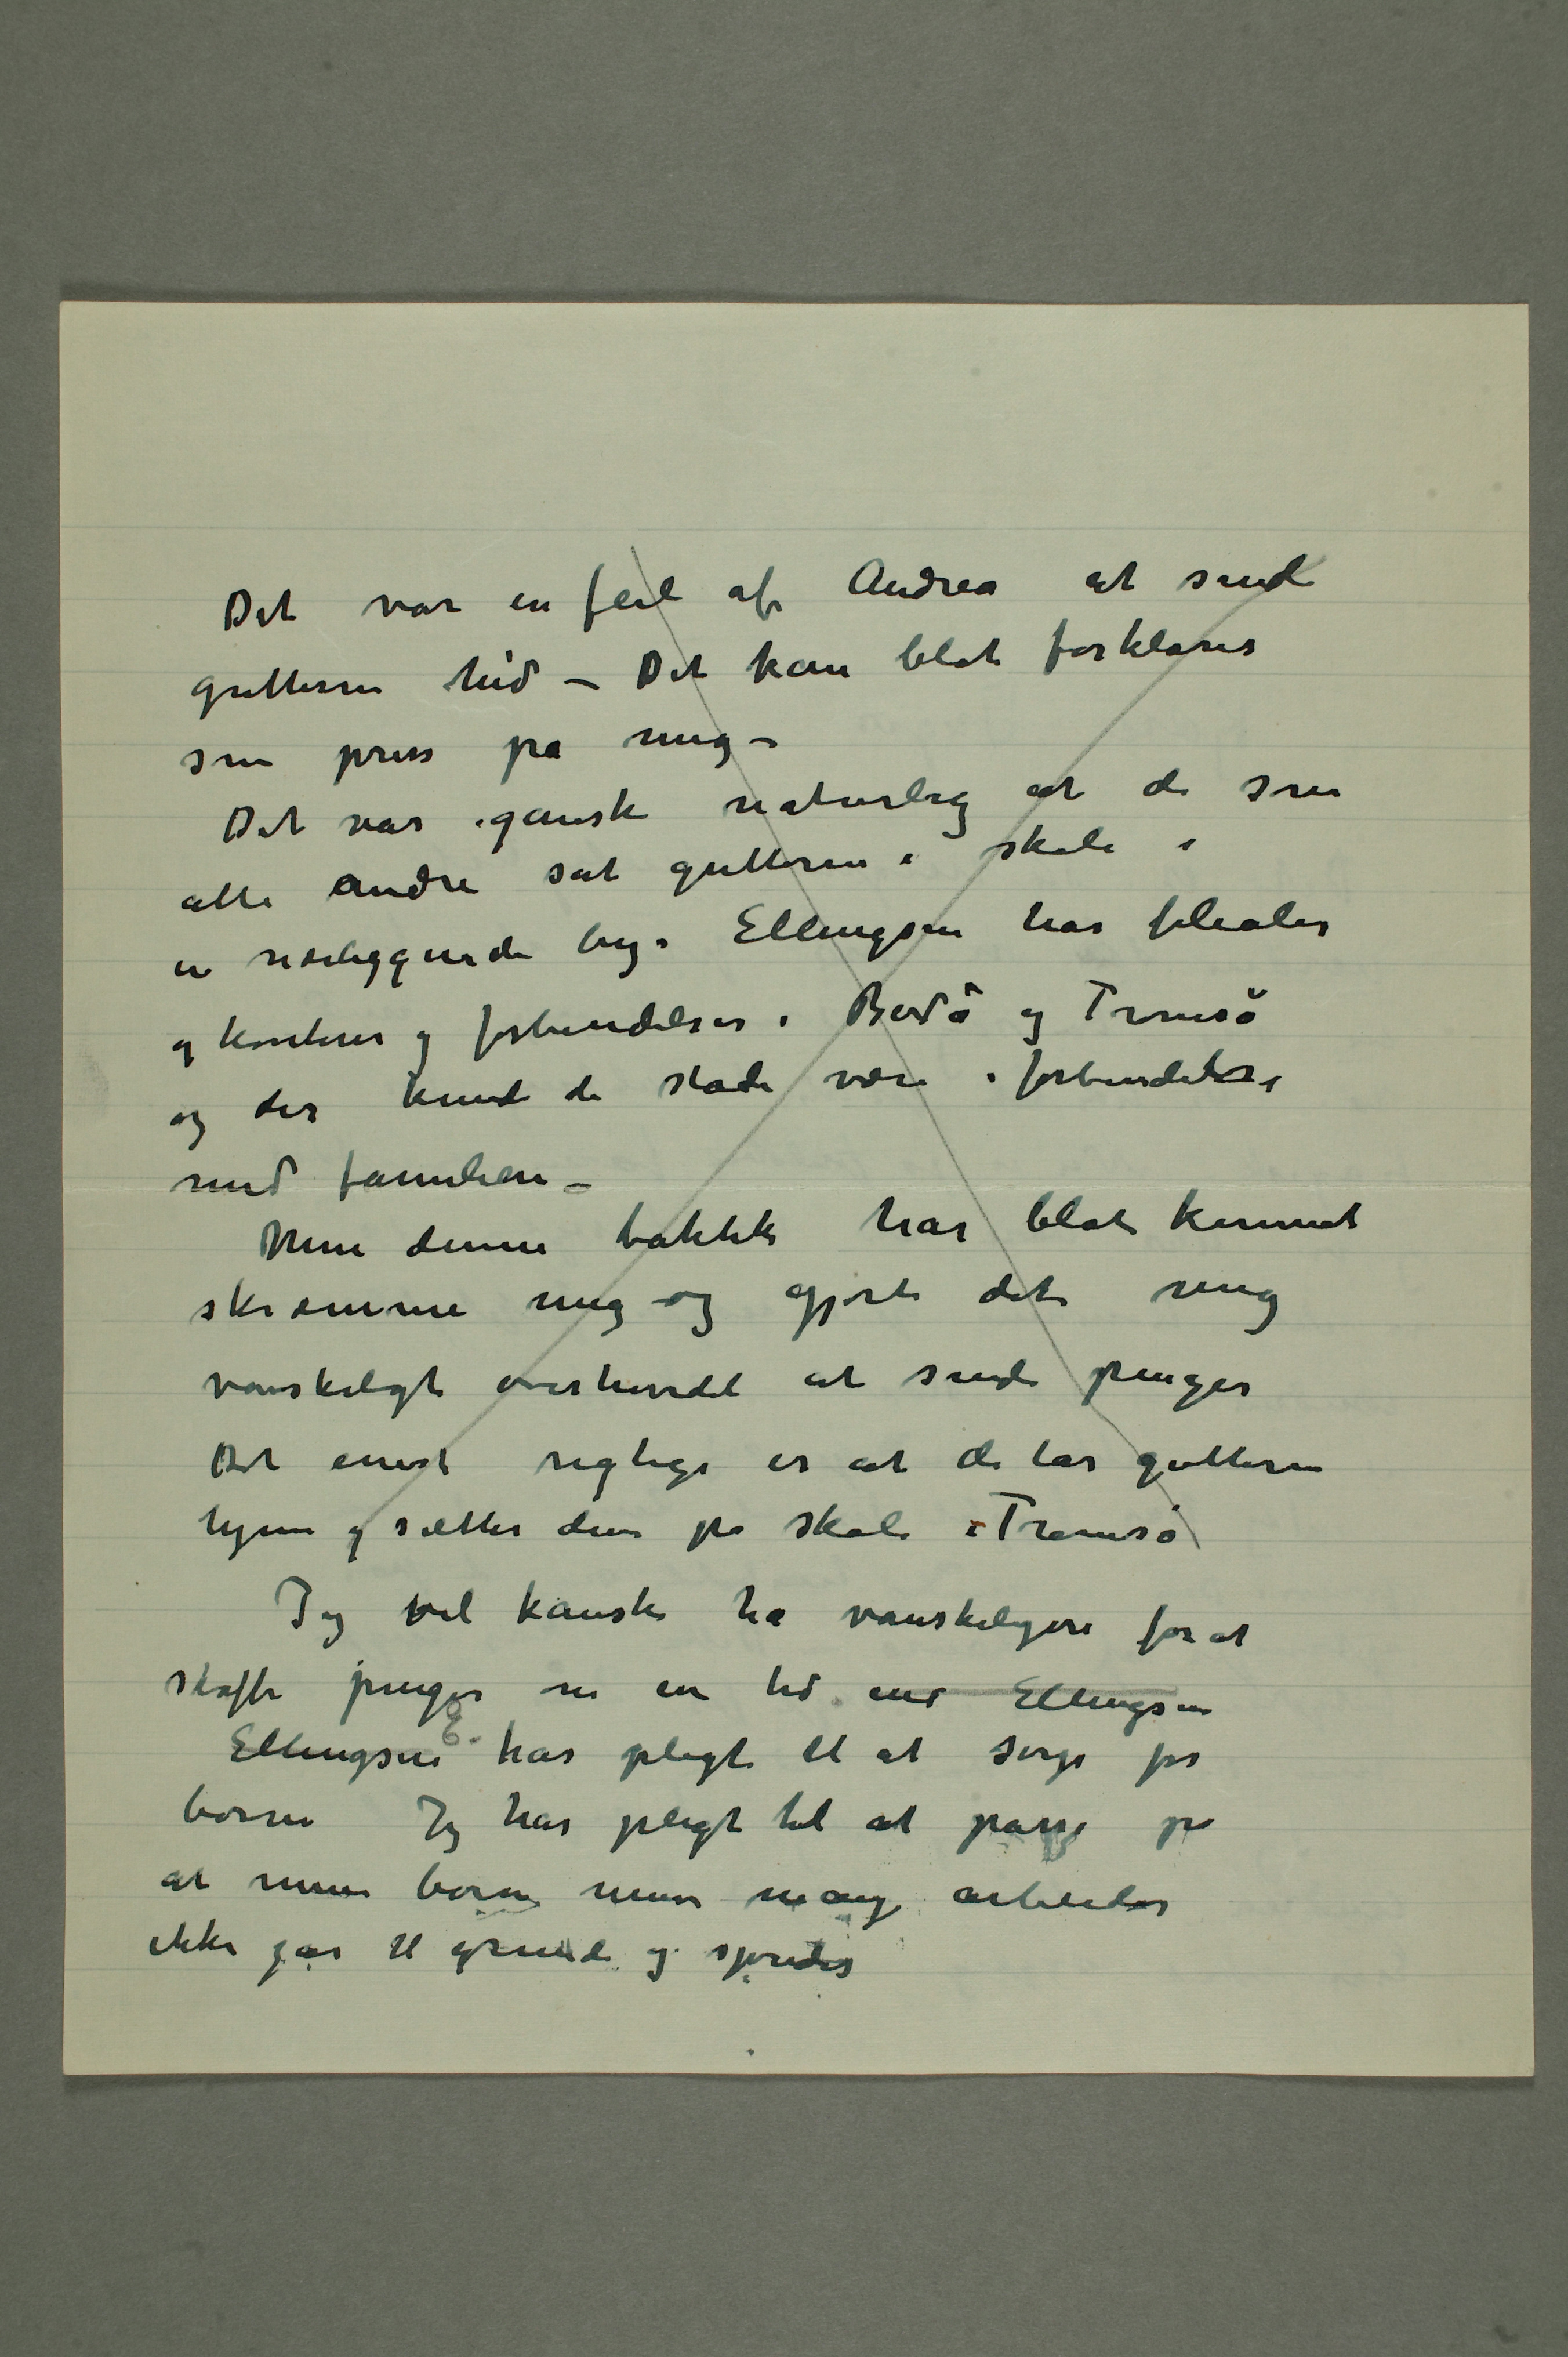 Det var en feil af Andrea at sende
gutterne hid – Det kan blot forklares
som press på mig –
Det var ganske naturlig at de som
alle andre sat gutterne i skole i
en nærliggende by. Ellingsen har filialer
og kontorer og forbindelser i Bodö og Tromsö
og der kunde de stade være i forbindelse
med familien –
Men denne taktik har blot kunnet
skræmme mig og gjort det mig
vanskeligt overhovedet at sende penger
Det eneste rigtige er at de tar gutterne
hjem og sætter dem på skole i Tromsö
Jeg vil kanske ha vanskeligere for at
skaffe penger om en tid end Ellingsen
Ellingsen E. har pligt til at sørge for
børnene Jeg har pligt til at passe på
at mine børn mine mange arbeider
ikke går til grunde og spredes